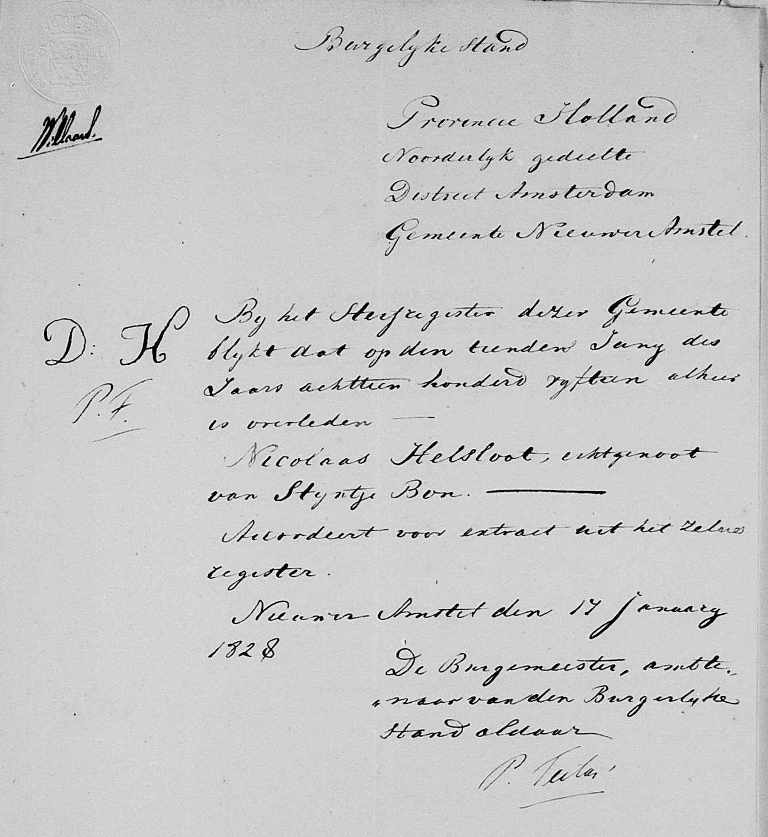 Burgelyke Stand
Provincie Holland
Noorderlyk gedeelte
District Amsterdam
Gemeente Nieuwer Amstel.
D: H
P. F.
By het Sterfregister dezer Gemeente
blykt dat op den tienden Juny des
Jaars achttien honderd vyftien alhier
is overleden —
Nicolaas Helsloot, echtgenoot
van Styntje Bon. —
Accordeert voor extract uit het zelve
register.
Nieuwer Amstel den 17 January
1828
De Burgemeester, ambte„
„naar van den Burgerlyke
Stand aldaar
P.